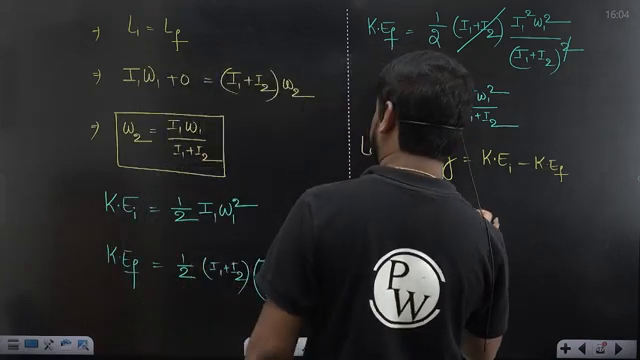 ⇒ L₁ = L_f
⇒ I₁ω₁ + 0 = (I₁+I₂) ω₂
⇒ ω₂ = I₁ω₁ / (I₁+I₂)
K·Eᵢ = 1/2 I₁ω₁²
K·E_f = 1/2 (I₁+I₂) (
K·E_f = 1/2 (I₁+I₂) I₁²ω₁² / (I₁+I₂)²
ω₁² / I₁+I₂
y = K·Eᵢ − K·E_f
16:04
P
W